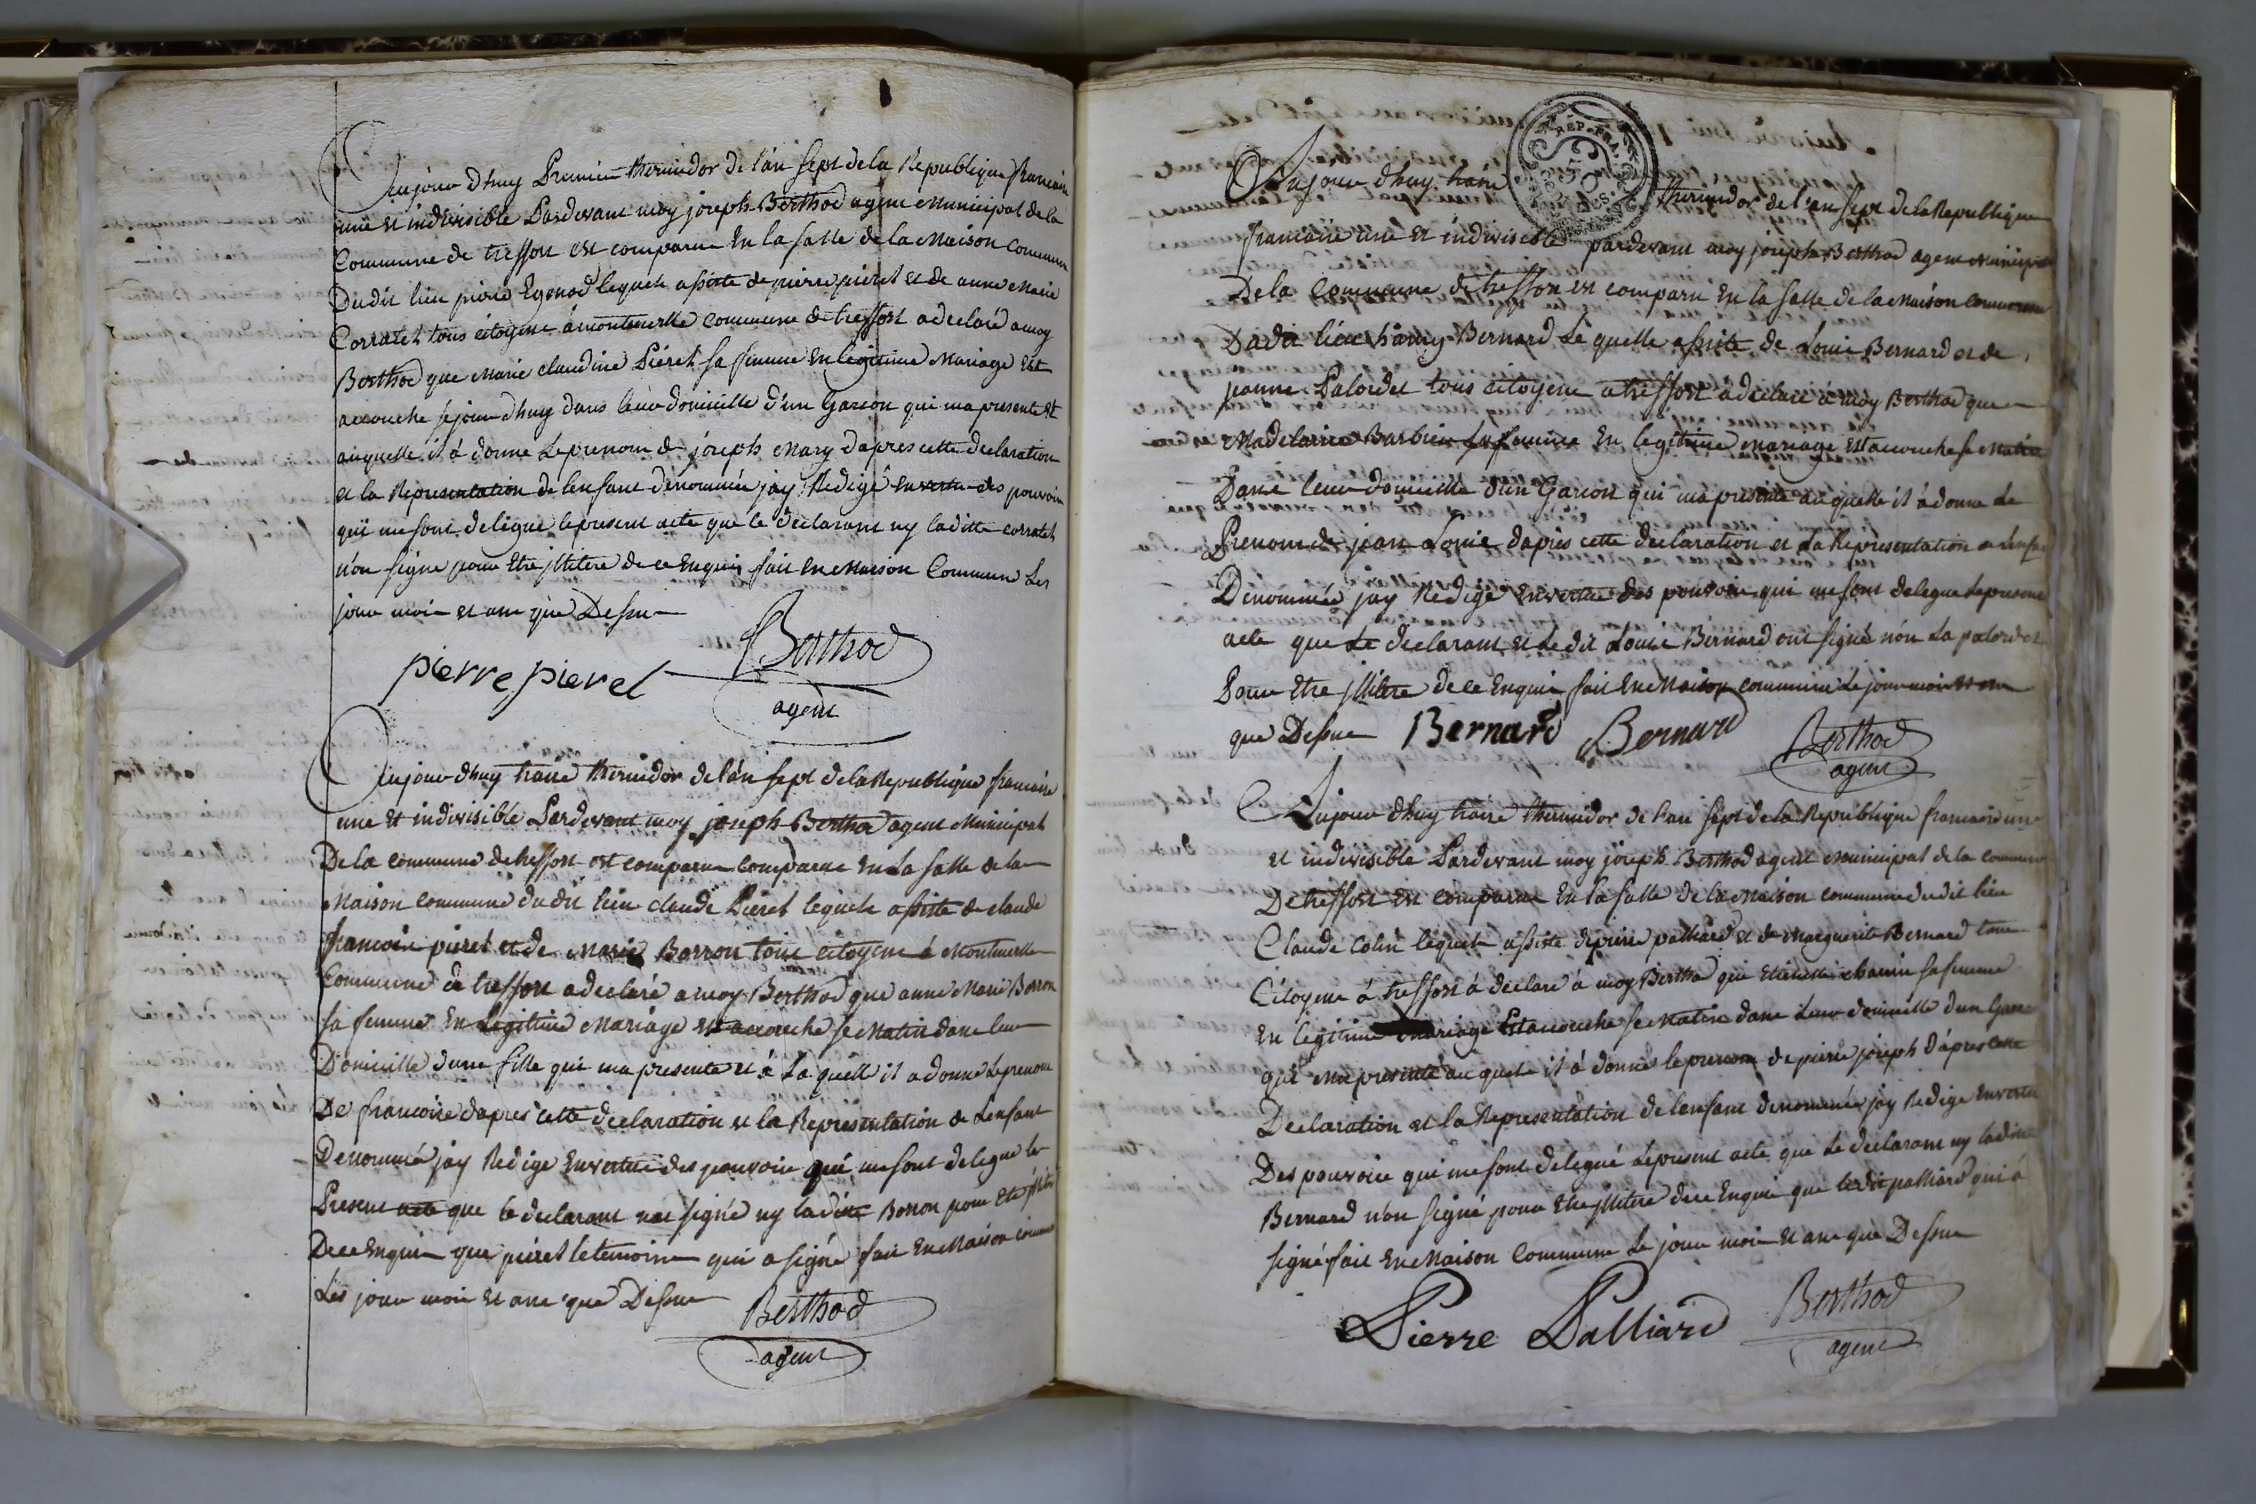 Aujour dhuy Premier thermidor de l'an sept de la Republique francaise
une et indivisible Pardevant moy joseph Berthod agent Municipal de la
Commune de treffort est comparu En la salle de la Maison Commune
Dudit lieu pierre lequele assiste de pierre pieret et de anne Marie
Corratet tous citoyens á montmerle commune de treffort a declaré a moy
Berthod que Marie claudine Pieret sa femme En legitime Mariage Est
accouche sejourdhuy dans leur domicille d'un Garcon qui ma presente et
auquelle il á donne Le prenom de joseph Mary dapres cette declaration
et la Representation de lenfant denommée jay Redigé En vertu des pouvoirs
qui me sont delegué le present acte que le declarant ny laditte corratet
n'on signe pour Etre jllitere de ce Enquis fait En Maison Commune Les
jour mois et ans que Dessus
pierre pieret Berthod
agent
Aujour dhuy traise thermidor de lán sept de la Republique francaise
une et indivisible Pardevant moy joseph Berthod agent Municipal
De la commune de treffort est comparu comparue En La salle de la
Maison Commune du dit lieu claude Pieret lequele assiste de claude
francois pieret et de Marie Borron tous citoyens á Montmerle
Commune de treffort a declaré a moy Berthod que anne Marie Borron
sa femme En Legitime Mariage Est accouche se Matin dans leur
Domicille dune fille qui ma presente et á La quelle il a donne Le prenom
De francoise dapres cette declaration et la Representation de Lenfant
Denommé jay Redige En vertue des pouvoirs qui me sont delegue le
Present acte que le declarant nas signé ny ladite Borron pour Etre jllitere
De ce Enquis que pieret le temoins qui a signé fait En Maison commune
Les jour mois et ans que Dessus Berthod
agent
REP. FRA.
Aujour dhuy traise thermidor de l'an sept de la Republique
francaise une et indivisible pardevant moy joseph Berthod agent Municipal
De la Commune de treffort est comparu En la salle de la Maison Commune
Dudit lieu Bernard Le quelle assiste de Louis Bernard et de
jeanne Palordet tous citoyens a treffort a declaré á moy Berthod que
Madelaine Barbier sa femme En legitime Mariage Est accouche se Matin
Dans leur domicille d'un Garcon qui ma presente au quelle il á donne Le
Prenom de jean Louis dapres cette declaration et La Representation de lenfant
Denommée jay Redigé En vertue des pouvoirs qui me sont delegue Le present
acte que Le declarant et Le dit Louis Bernard ont signé nón La palordet
Pour Etre jllitere de ce Enquis fait En Maison commune Le jour mois et ans
que Dessus Bernard Bernard Berthod
agent
Aujour dhuy traise thermidor de l'an sept de la Republique francaise une
et indivisible Pardevant moy joseph Berthod agent Municipal de la commune
De treffort Est comparue En la salle de la Maison commune dudit lieu
Claude Colin lequele assiste de pierre palliard et de Marguerite Bernard tous
Citoyens á treffort á declare á moy Berthod que sa femme
En legitime Mariage Est accouche se Matin dans Leur domicille d'un Garcon
qui ma presente au quele il á donné le prenom de pierre joseph D'ápres cette
Declaration et la Representation de lenfant denommée jay Redige En vertu
Des pouvoirs qui me sont delegué Le present acte que Le declarant ny ladite
Bernard nón signé pour Etre jllitere de ce Enquis que ledit palliard qui á
signé fait En Maison Commune Le jour mois et ans que Dessus
Pierre Palliard Berthod
agent